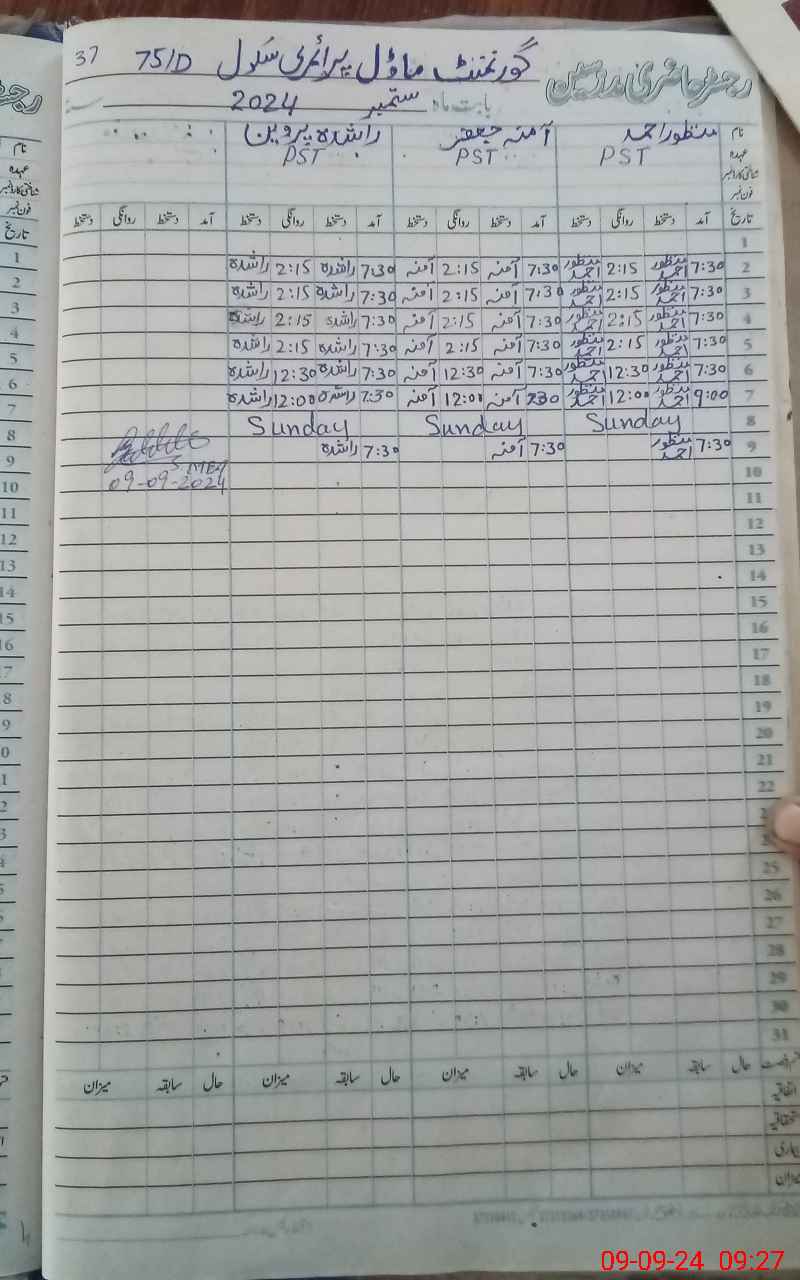 37 گورنمنٹ ماڈل پرائمری سکول 75/D
رجسٹر حاضری مدرسین
بابت ماہ ستمبر 2024
نام منظور احمد آمنہ جعفر راشدہ پروین
عہدہ PST PST PST
شناختی کارڈ نمبر
فون نمبر
تاریخ آمد دستخط روانگی دستخط آمد دستخط روانگی دستخط آمد دستخط روانگی دستخط آمد دستخط روانگی دستخط
1
2 7:30 منظور احمد 2:15 منظور احمد 7:30 آمنہ 2:15 آمنہ 7:30 راشدہ 2:15 راشدہ
3 7:30 منظور احمد 2:15 منظور احمد 7:30 آمنہ 2:15 آمنہ 7:30 راشدہ 2:15 راشدہ
4 7:30 منظور احمد 2:15 منظور احمد 7:30 آمنہ 2:15 آمنہ 7:30 راشدہ 2:15 راشدہ
5 7:30 منظور احمد 2:15 منظور احمد 7:30 آمنہ 2:15 آمنہ 7:30 راشدہ 2:15 راشدہ
6 7:30 منظور احمد 12:30 منظور احمد 7:30 آمنہ 12:30 آمنہ 7:30 راشدہ 12:30 راشدہ
7 9:00 منظور احمد 12:00 منظور احمد 730 آمنہ 12:00 آمنہ 7:30 راشدہ 12:00 راشدہ
8 Sunday Sunday Sunday
9 7:30 منظور احمد 7:30 آمنہ 7:30 راشدہ
10 09-09-2024
11
12
13
14
15
16
17
18
19
20
21
22
25
26
27
28
29
30
31
حال سابقہ میزان حال سابقہ میزان حال سابقہ میزان حال سابقہ میزان
اتفاقیہ
استحقاقیہ
بیماری
میزان
09-09-24 09:27